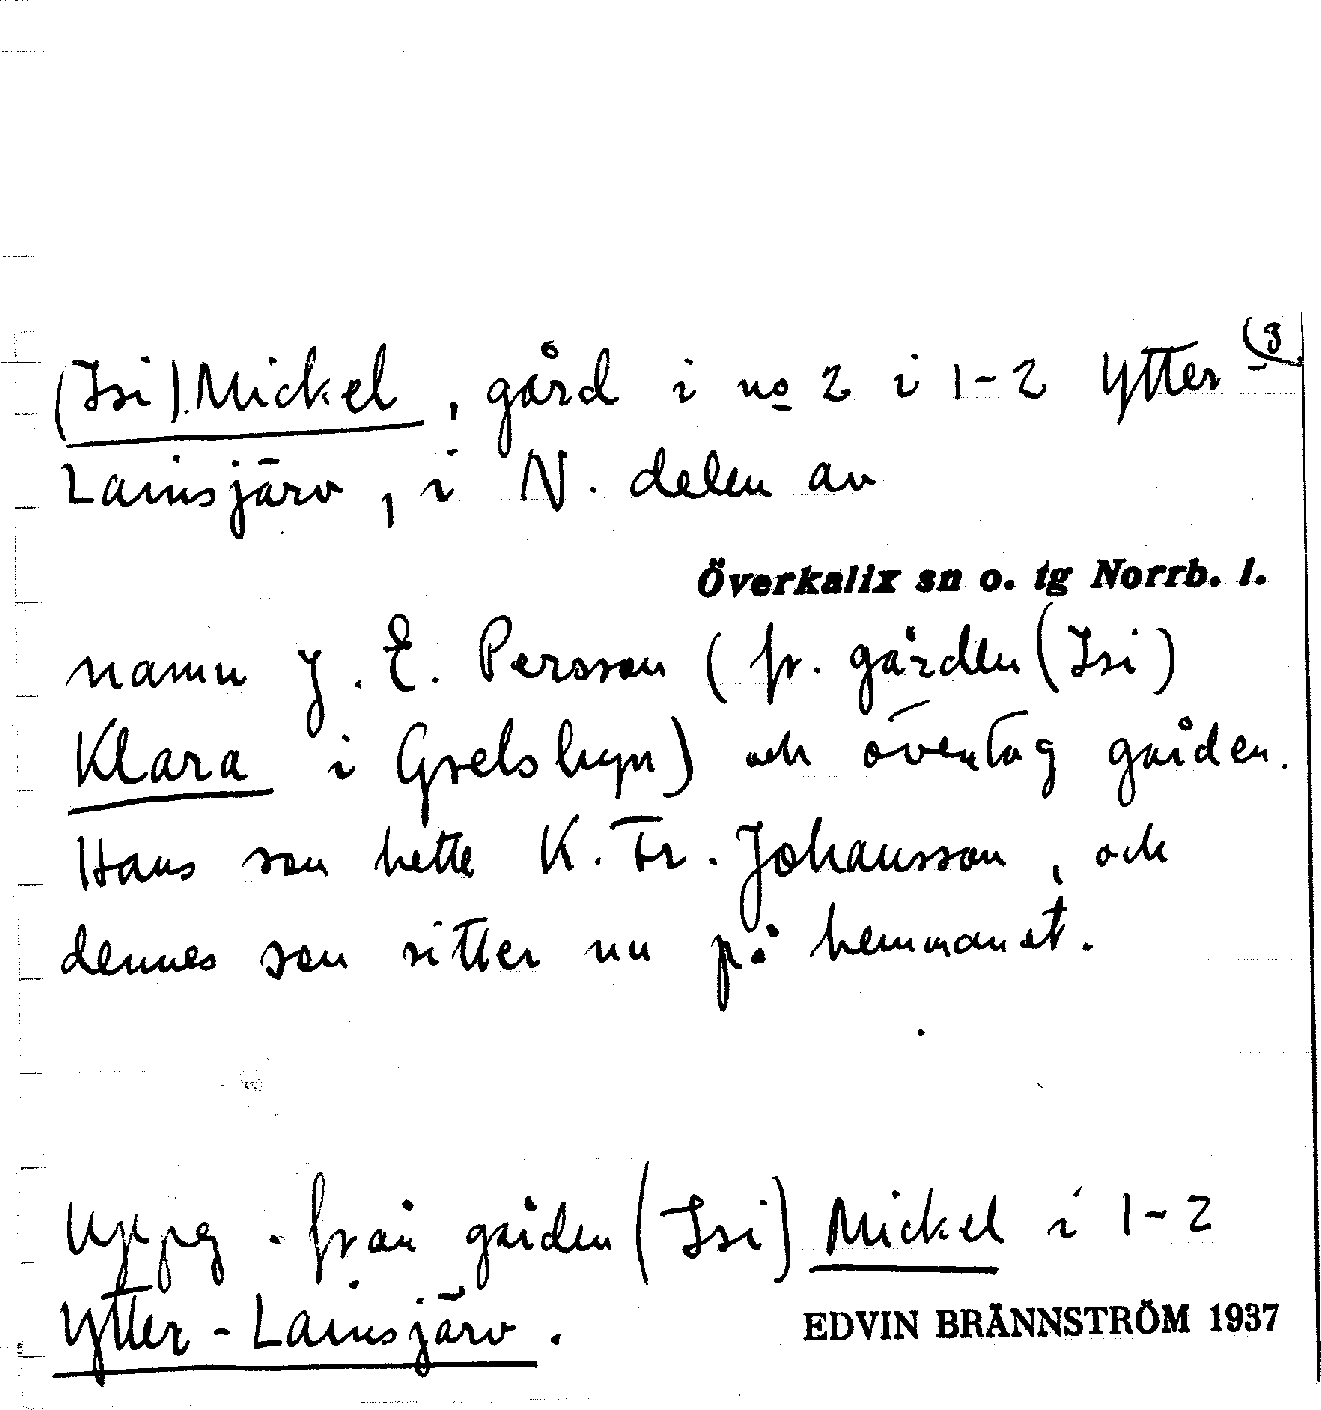 (3
(Isi) Mickel, gård i no 2 i 1-2 Ytter-
Lainsjärv, i N. delen av
Överkalix sn o. tg Norrb. l.
namn J. E. Persson (fr. gården (Isi)
Klara i Grelsbyn) och övertog gården.
Hans son hette K. Fr. Johansson, och
dennes son sitter nu på hemmanet.
Uppg. från gården (Isi) Mickel i 1-2
Ytter-Lainsjärv.
EDVIN BRÄNNSTRÖM 1937